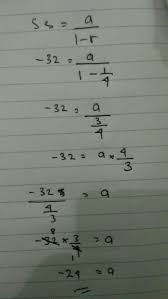 S∞ = a/(1-r)
-32 = a/(1 - 1/4)
-32 = a/(3/4)
-32 = a × 4/3
-32/(4/3) = a
-32 × 3/4 = a
-24 = a